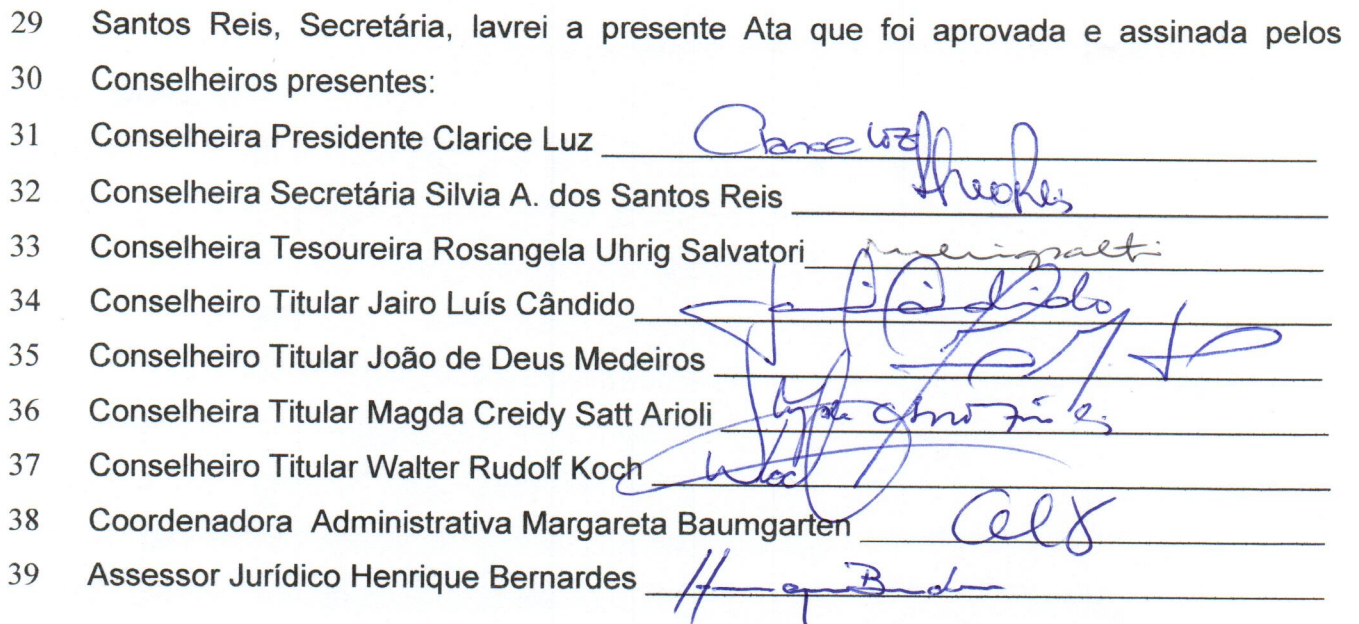 29 Santos Reis, Secretária, lavrei a presente Ata que foi aprovada e assinada pelos
30 Conselheiros presentes:
31 Conselheira Presidente Clarice Luz Clarice Luz
32 Conselheira Secretária Silvia A. dos Santos Reis
33 Conselheira Tesoureira Rosangela Uhrig Salvatori
34 Conselheiro Titular Jairo Luís Cândido
35 Conselheiro Titular João de Deus Medeiros
36 Conselheira Titular Magda Creidy Satt Arioli
37 Conselheiro Titular Walter Rudolf Koch
38 Coordenadora Administrativa Margareta Baumgarten
39 Assessor Jurídico Henrique Bernardes